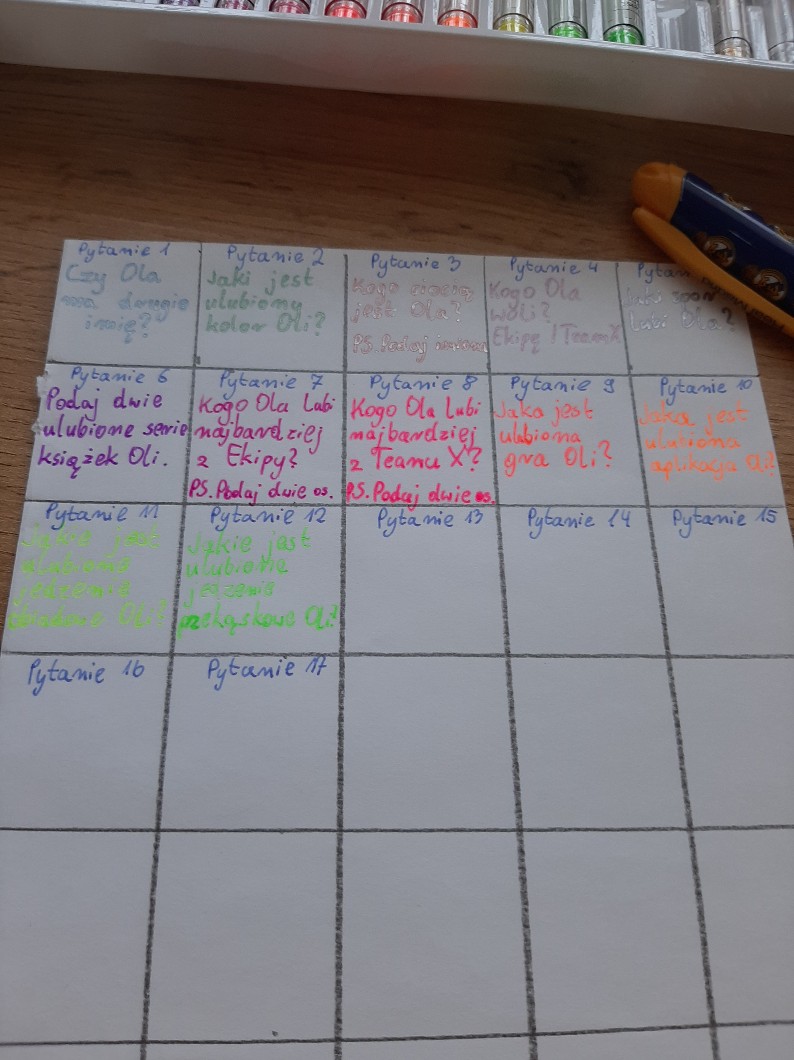 Pytanie 1
Czy Ola
ma drugie
imię?
Pytanie 2
Jaki jest
ulubiony
kolor Oli?
Pytanie 3
Kogo
jest Ola?
PS. Podaj
Pytanie 4
Kogo Ola
woli?
Ekipę / Team X
Lubi Ola?
Pytanie 6
Podaj dwie
ulubione serie
książek Oli.
Pytanie 7
Kogo Ola Lubi
najbardziej
z Ekipy?
PS. Podaj dwie os.
Pytanie 8
Kogo Ola Lubi
najbardziej
z Teamu X?
PS. Podaj dwie os.
Pytanie 9
Jaka jest
ulubiona
gra Oli?
Pytanie 10
Jaka jest
ulubiona
aplikacja Oli?
Pytanie 11
Jakie jest
ulubione
jedzenie
obiadowe Oli?
Pytanie 12
Jakie jest
ulubione
jedzenie
przekąskowe Oli?
Pytanie 13
Pytanie 14
Pytanie 15
Pytanie 16
Pytanie 17